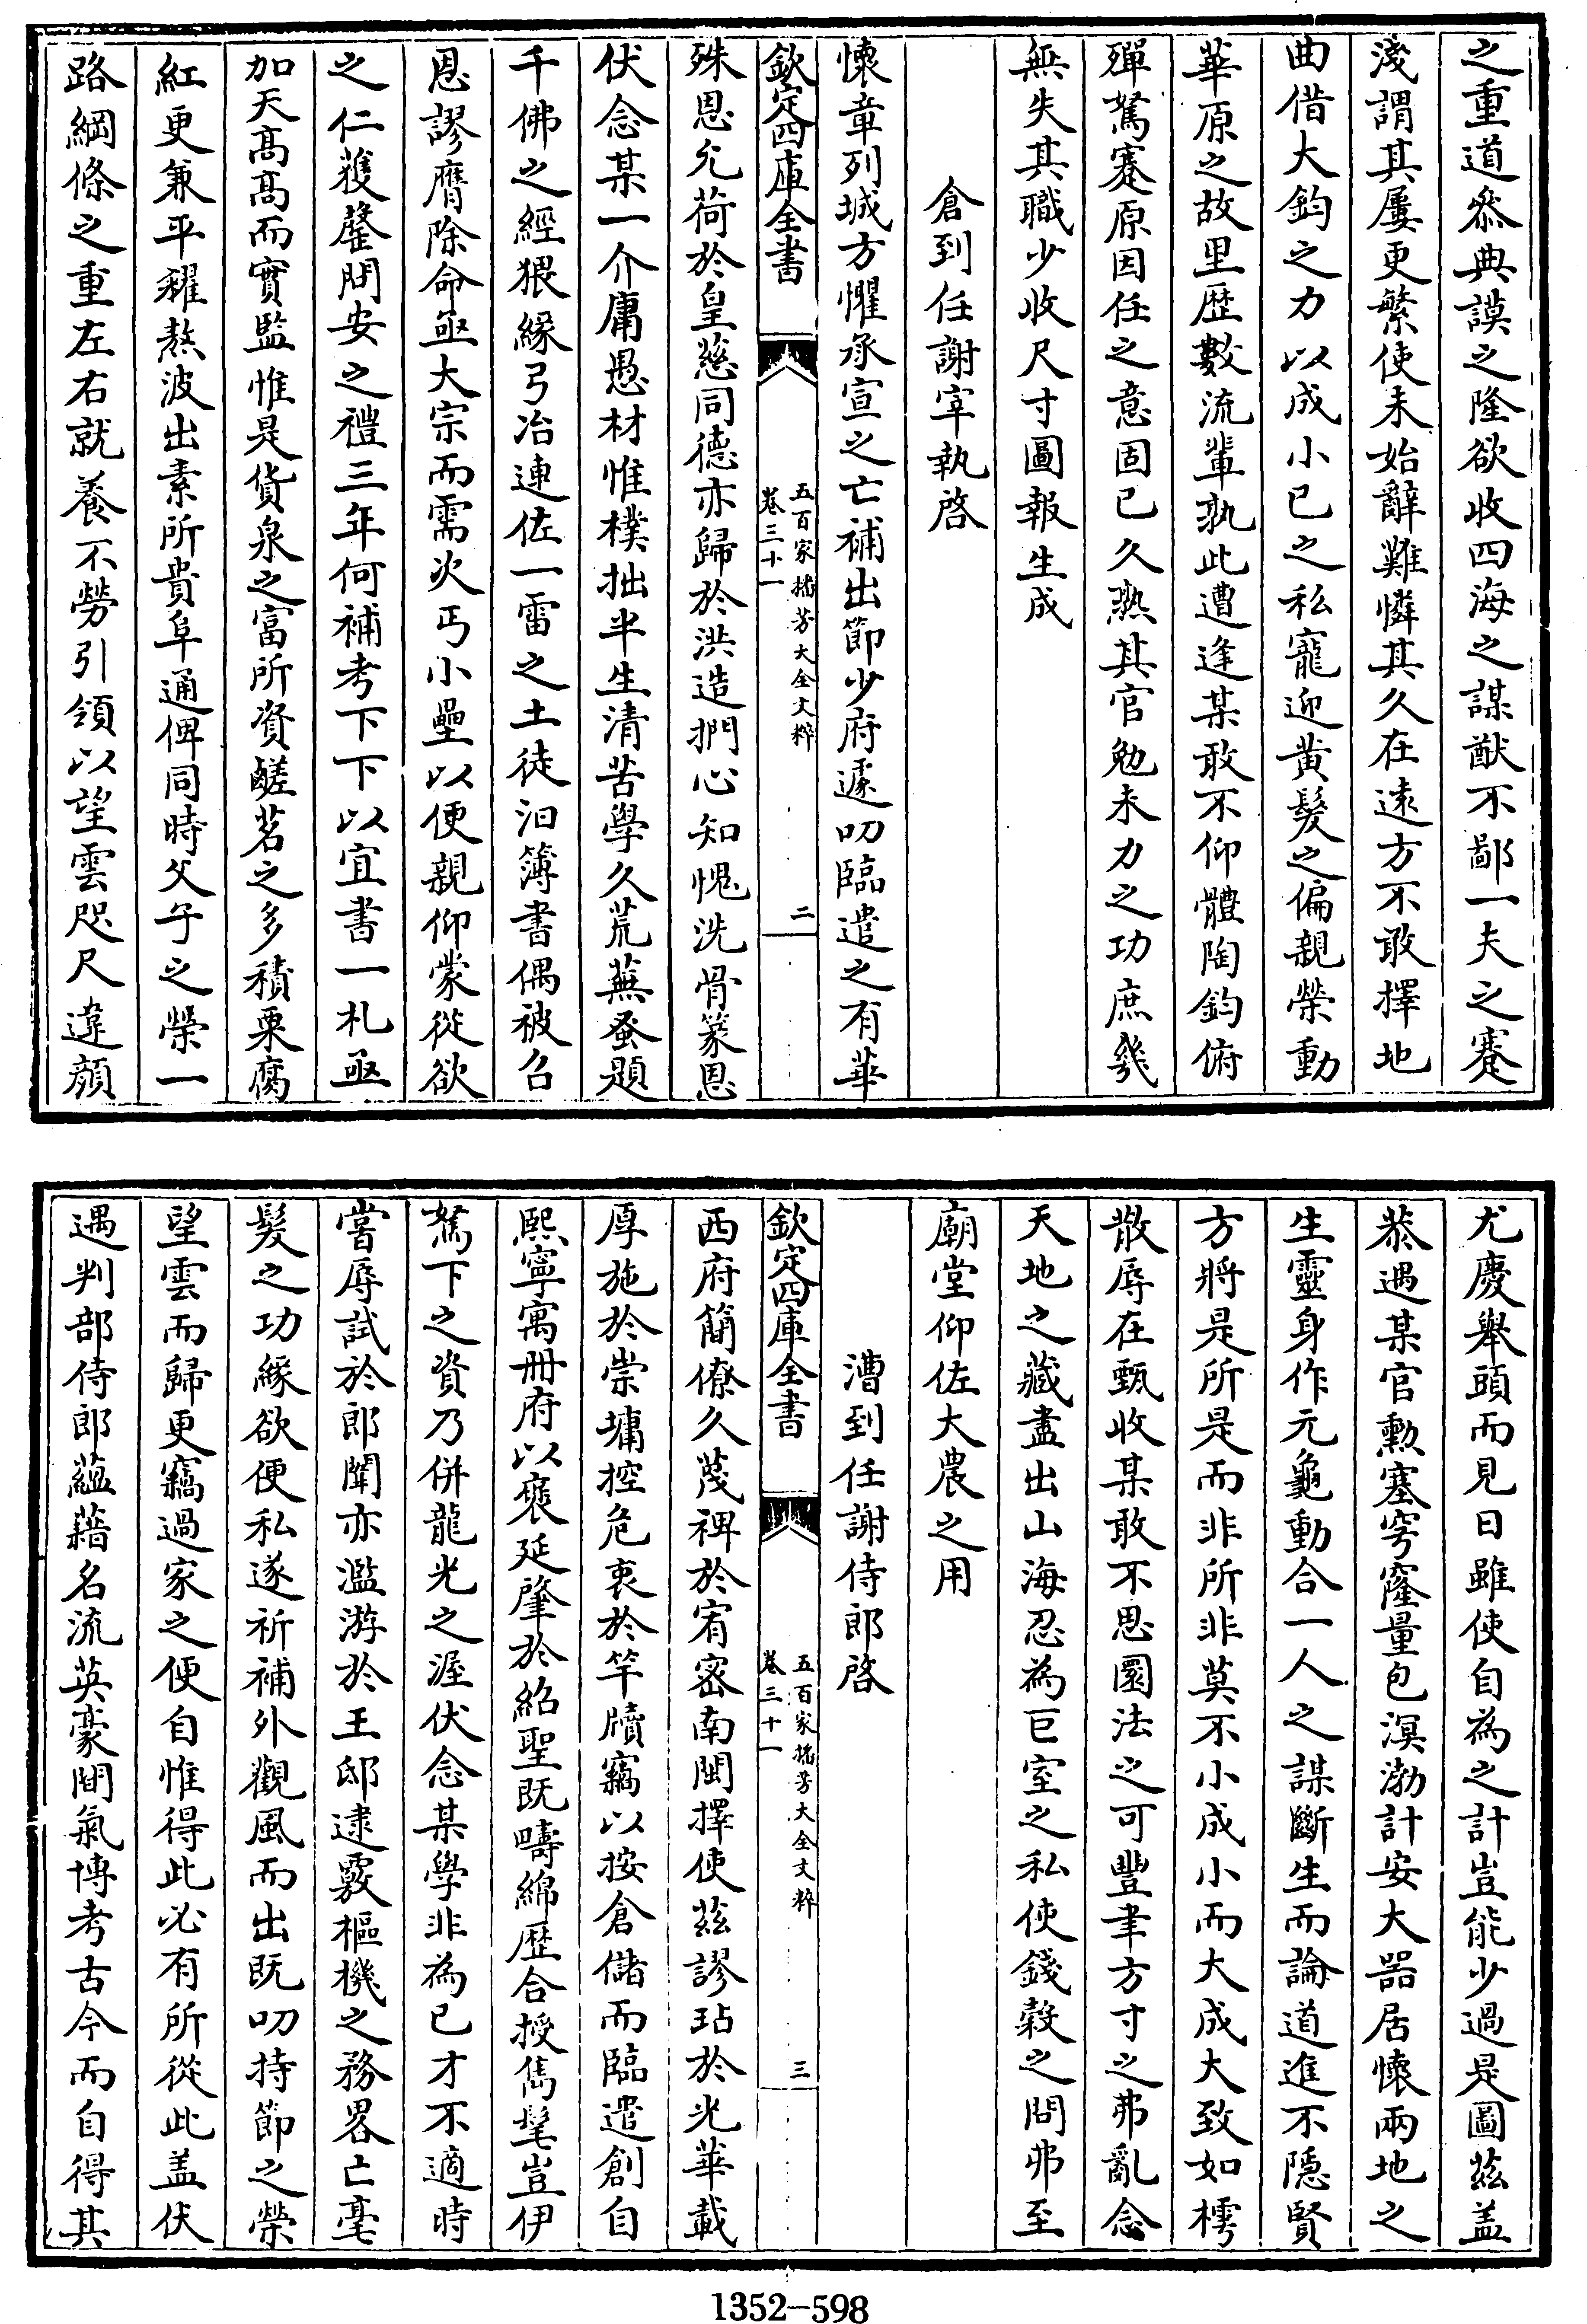 之重道叅典謨之隆欲收四海之謀猷不鄙一夫之蹇
淺謂其屢更繁使未始辭難憐其久在遠方不敢擇地
曲借大鈞之力以成小已之私寵迎黄髮之偏親榮動
華原之故里歴數流輩孰此遭逢某敢不仰體陶鈞俯
殫駑蹇原因任之意固已久熟其官勉未力之功庶幾
無失其職少收尺寸圖報生成
倉到任謝宰執啓
懐章列城方懼承宣之亡補出節少府遽叨臨遣之有華
欽定四庫全書
五百家播芳大全文粹
卷三十一
二
殊恩允荷於皇慈同德亦歸於洪造捫心知愧洗骨篆恩
伏念某一介庸愚材惟樸拙半生清苦學久荒蕪蚤題
千佛之經猥緣弓冶連佐一雷之土徒汩簿書偶被召
恩謬膺除命亟大宗而需次丐小壘以便親仰蒙從欲
之仁獲罄問安之禮三年何補考下下以宜書一札亟
加天髙髙而實監惟是貨泉之富所資鹺茗之多積粟腐
紅更兼平糴熬波出素所貴阜通俾同時父子之榮一
路綱條之重左右就養不勞引領以望雲咫尺違顔
尤慶舉頭而見日雖使自為之計豈能少過是圖茲盖
恭遇某官勲塞穹窿量包溟渤計安大器居懐兩地之
生靈身作元龜動合一人之謀斷生而論道進不隠賢
方將是所是而非所非莫不小成小而大成大致如樗
散辱在甄收某敢不思圜法之可豐聿方寸之弗亂念
天地之藏盡出山海忍為巨室之私使錢穀之問弗至
廟堂仰佐大農之用
漕到任謝侍郎啓
欽定四庫全書
五百家播芳大全文粹
卷三十一
三
西府簡僚久蔑裨於宥密南閩擇使茲謬玷於光華載
厚施於崇墉控危衷於竿牘竊以按倉儲而臨遣創自
熙寧寓冊府以褒延肇於紹聖既疇綿歴合授雋髦豈伊
駑下之資乃併龍光之渥伏念某學非為已才不適時
嘗辱試於郎闈亦濫游於王邸逮覈樞機之務畧亡毫
髮之功緣欲便私遂祈補外觀風而出既叨持節之榮
望雲而歸更竊過家之便自惟得此必有所從此盖伏
遇判部侍郎蘊藉名流英豪間氣博考古今而自得其
1352-598